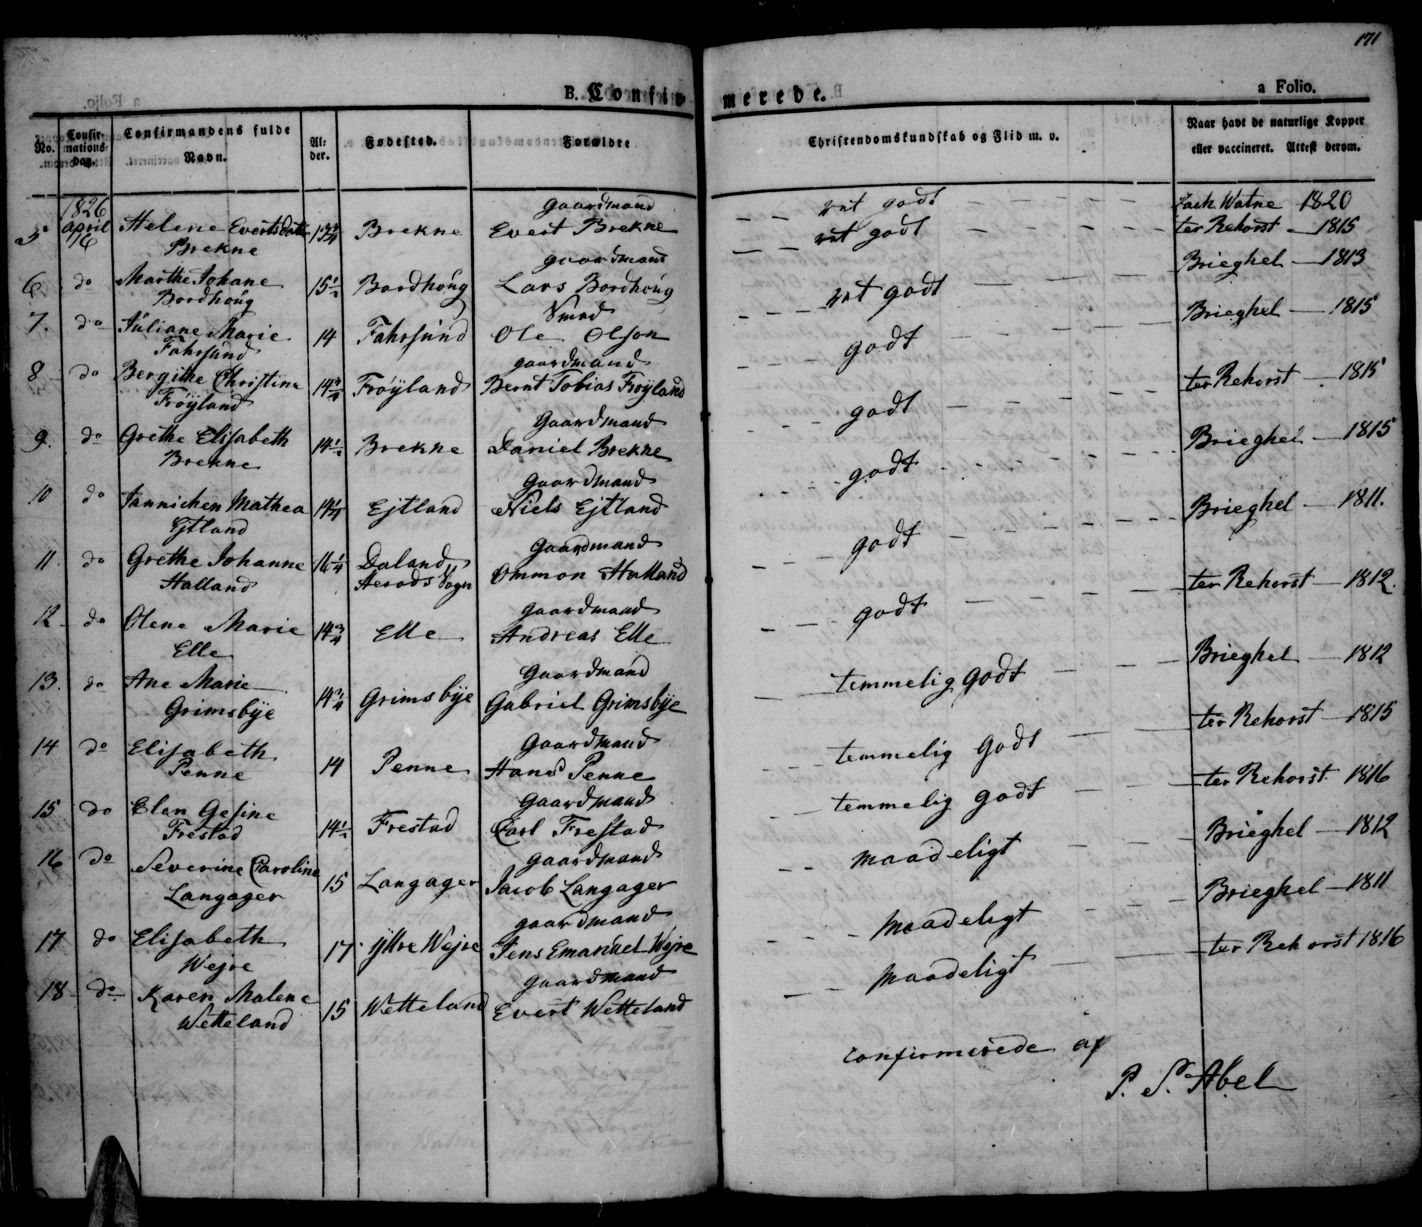 171
B. Confirmerede.
a Folio.
No.
Confirmations-
dag.
Confirmandens fulde
Navn.
Al-
der.
Fødested.
Forældre
Christendomskundskab og Flid m. v.
Naar havt de naturlige Kopper
eller vaccineret. Attest derom.
1826 Gaardmand ret godt Zach Watne 1820
5 april 16 Helene Evertsdatter 13 3/4 Brekne Evert Brekne ret godt ter Rehorst 1815
Brekne gaardmand
6 do Marthe Johane 15 1/2 Bordhoug Lars Bordhoug ret godt Brieghel 1813
Bordhoug Smed
7. do Juliane Marie 14 Fahrsund Ole Olson godt Brieghel 1815
Fahrsund gaardmand
8 do Bergithe Christine 14 3/4 Frøyland Bernt Tobias Frøyland godt ter Rehorst 1815
Frøyland Gaardmand
9. do Grethe Elisabeth 14 1/2 Brekne Daniel Brekne godt Brieghel 1815
Brekne Gaardmand
10 do Jannichen Mathea 14 1/4 Ejtland Niels Ejtland godt Brieghel 1811.
Ejtland Gaardmand
11. do Grethe Johanne 16 1/4 Daland Ommon Halland godt ter Rehorst 1812.
Halland Sogn Gaardmand
12 do Olene Marie 14 3/4 Elle Andreas Elle temmelig godt Brieghel 1812
Elle Gaardmand
13. do Ane Marie 14 3/4 Grimsbye Gabriel Grimsbye temmelig godt ter Rehorst 1815
Grimsbye Gaardmand
14 do Elisabeth 14 Penne Hans Penne temmelig godt ter Rehorst 1816
Penne Gaardmand
15 do Elen Gesine 14 1/2 Frestad Carl Frestad maadeligt Brieghel 1812
Frestad gaardmand
16 do Severine Caroline 15 Langager Jacob Langager maadeligt Brieghel 1811
Langager gaardmand
17 do Elisabeth 17 Yttre Wejre Jens Emanuel Wejre maadeligt ter Rehorst 1816
Wejre gaardmand
18 do Karen Malene 15 Wetteland Evert Wetteland
Wetteland
confirmerede af
P. P. Abel